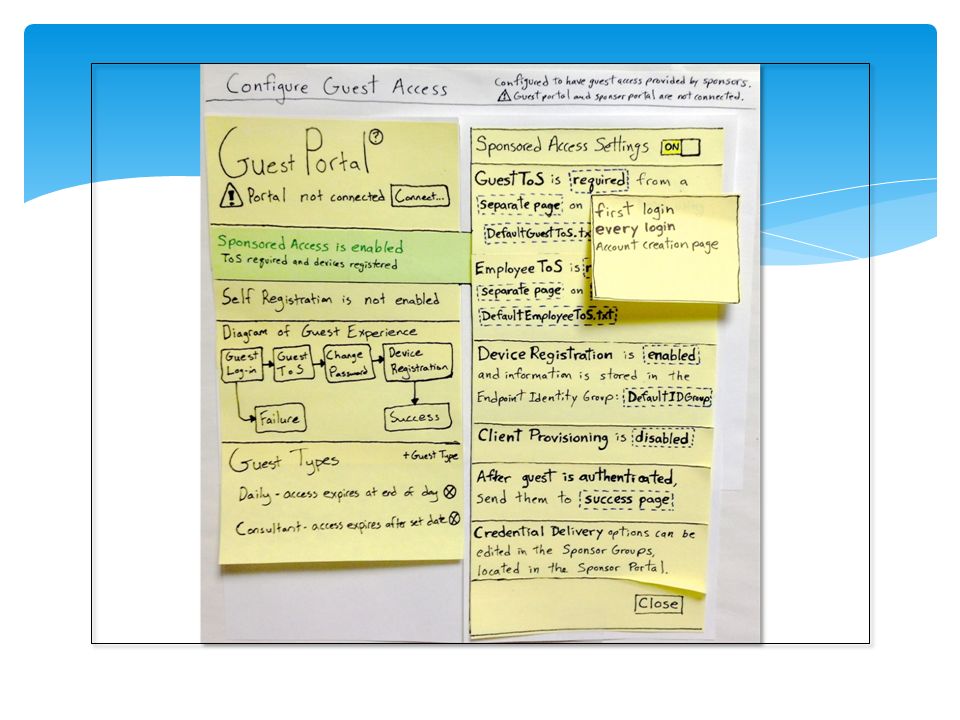 Configure Guest Access
Configured to have guest access provided by sponsors.
Guest portal and sponsor portal are not connected.
Guest Portal ?
! Portal not connected Connect...
Sponsored Access is enabled
ToS required and devices registered
Self Registration is not enabled
Diagram of Guest Experience
Guest Log-in
Guest ToS
Change Password
Device Registration
Failure
Success
Guest Types
+ Guest Type
Daily - access expires at end of day
Consultant - access expires after set date
Sponsored Access Settings ON
Guest ToS is required from a
separate page on
DefaultGuestToS.tx
first login
every login
Account creation page
Employee ToS is
separate page on
DefaultEmployeeToS.txt
Device Registration is enabled
and information is stored in the
Endpoint Identity Group: DefaultIDGroup
Client Provisioning is disabled
After guest is authenticated,
send them to success page
Credential Delivery options can be
edited in the Sponsor Groups,
located in the Sponsor Portal.
Close